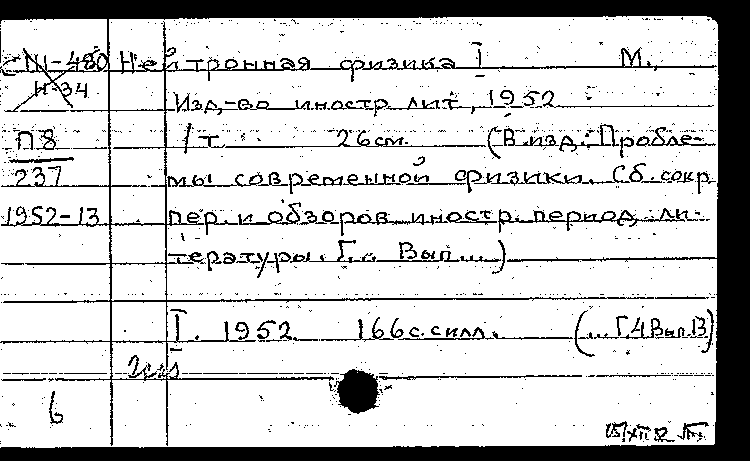 СШ-480 Нейтронная физика I М.,
Н-34
Изд,-во иностр. лит, 1952
П8 1 т 26 см. (В изд.: Пробле-
237 мы современной физики. Сб. сокр
1952-13 пер. и обзоров иностр. период. ли-
тературы. Г... Вып...)
I. 1952 166 с. с илл. (... Г.4 Вып.13)
6